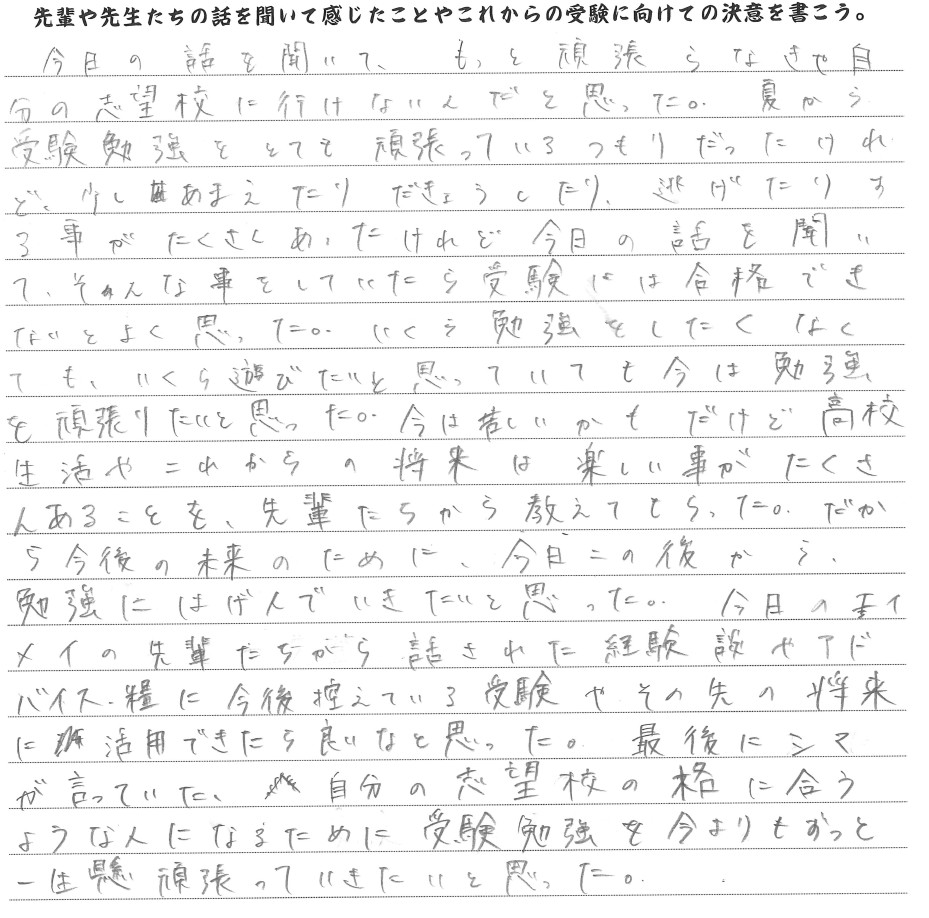 先輩や先生たちの話を聞いて感じたことやこれからの受験に向けての決意を書こう。
今日の話を聞いて、もっと頑張らなきゃ自
分の志望校に行けないんだと思った。夏から
受験勉強をとても頑張っているつもりだったけれ
ど、少しあまえたりだきょうしたり、逃げたりす
る事がたくさんあったけれど今日の話を聞い
て、そんな事をしていたら受験には合格でき
ないとよく思った。いくら勉強をしたくなく
ても、いくら遊びたいと思っていても今は勉強
を頑張りたいと思った。今は苦しいかもだけど高校
生活やこれからの将来は楽しい事がたくさ
んあることを、先輩たちから教えてもらった。だか
ら今後の未来のために、今日この後から、
勉強にはげんでいきたいと思った。今日の
メイの先輩たちから話された経験談やアド
バイス糧に今後控えている受験やその先の将来
に活用できたら良いなと思った。最後にシマ
が言っていた、自分の志望校の格に合う
ような人になるために受験勉強を今よりもずっと
一生懸頑張っていきたいと思った。